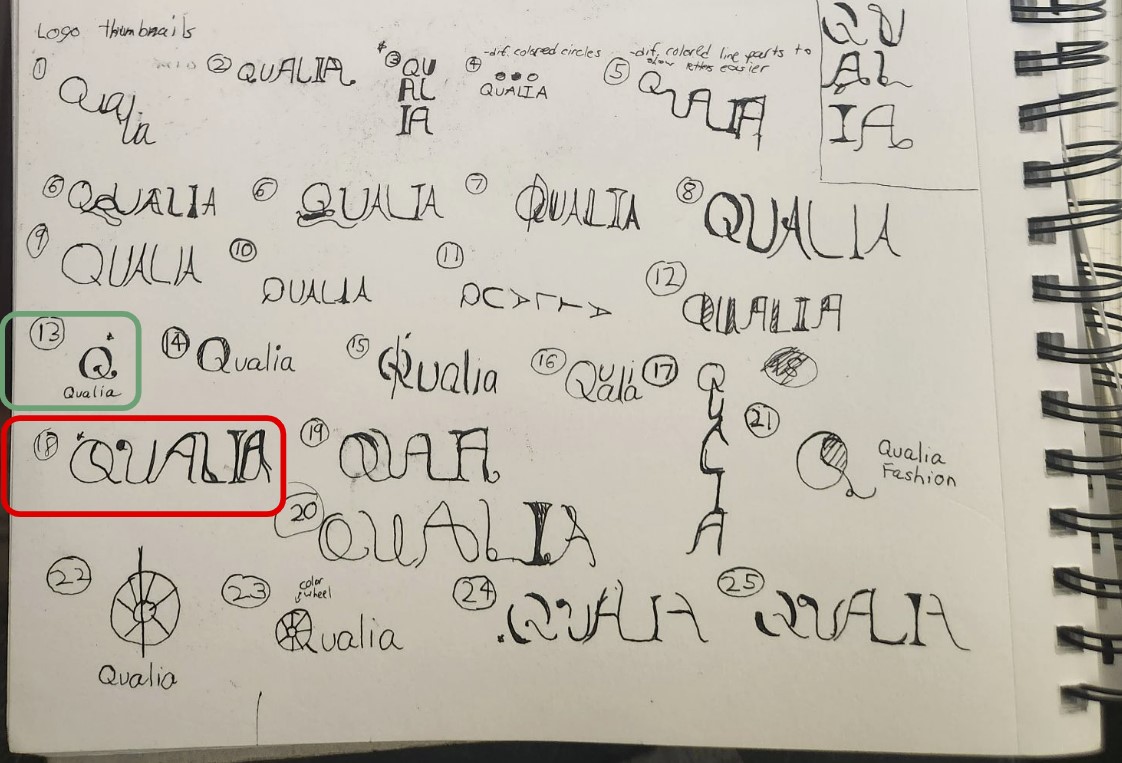 Logo thumbnails
① Qualia
② QUALIA
* ③ QU
AL
IA
④ -dif. colored circles
QUALIA
⑤ -dif. colored line parts to
show letters easier
QUALIA
QU
AL
IA
⑥ QUALIA
⑥ QUALIA
⑦ QUALIA
⑧ QUALIA
⑨ QUALIA
⑩ QUALIA
⑪
⑫ QUALIA
⑬ * Q
Qualia
⑭ Qualia
⑮ Qualia
⑯
⑰
⑱ * QUALIA
⑲
⑳ QUALIA
㉑ Q
Qualia
Fashion
㉒ Qualia
㉓ color
wheel
Qualia
㉔ * QUALIA
㉕ QUALIA